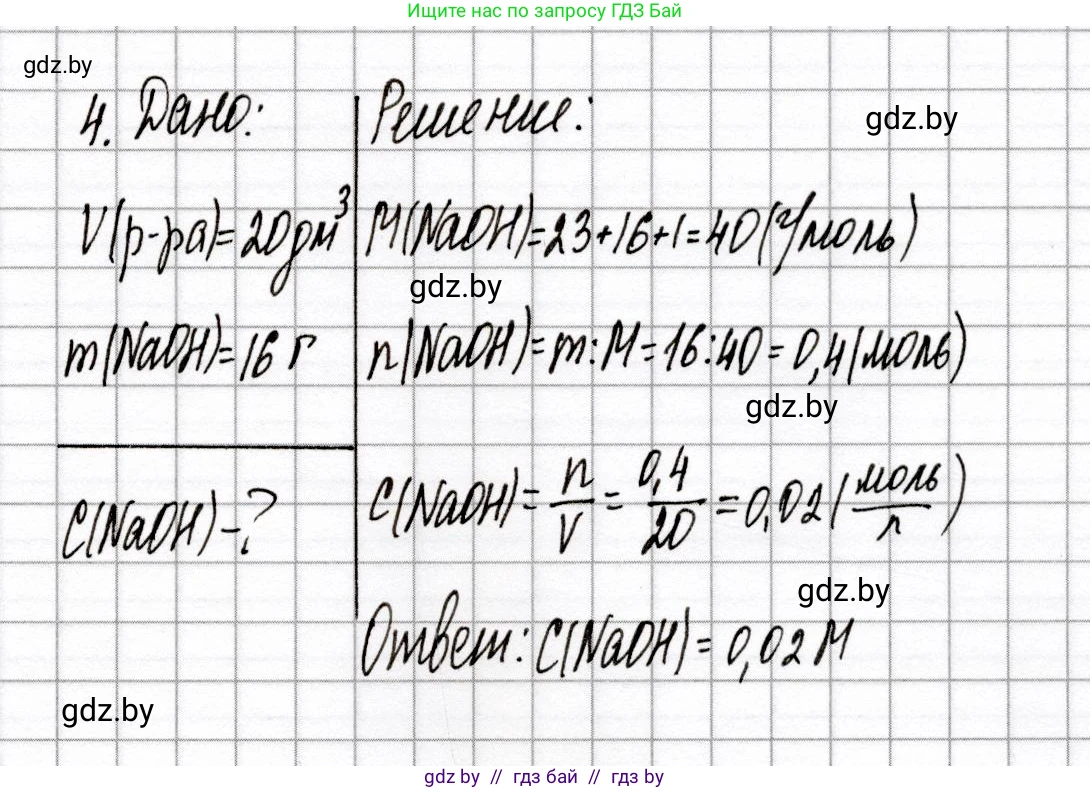 Ищите нас по запросу ГДЗ Бай
gdz.by
4. Дано:
Решение:
gdz.by
V(р-ра)=20дм³
M(NaOH)=23+16+1=40(г/моль)
gdz.by
m(NaOH)=16 г
n(NaOH)=m:M=16:40=0,4(моль)
gdz.by
C(NaOH)-?
C(NaOH)=n/V=0,4/20=0,02(моль/л)
gdz.by
Ответ: C(NaOH)=0,02M
gdz.by
gdz.by // гдз бай // гдз by